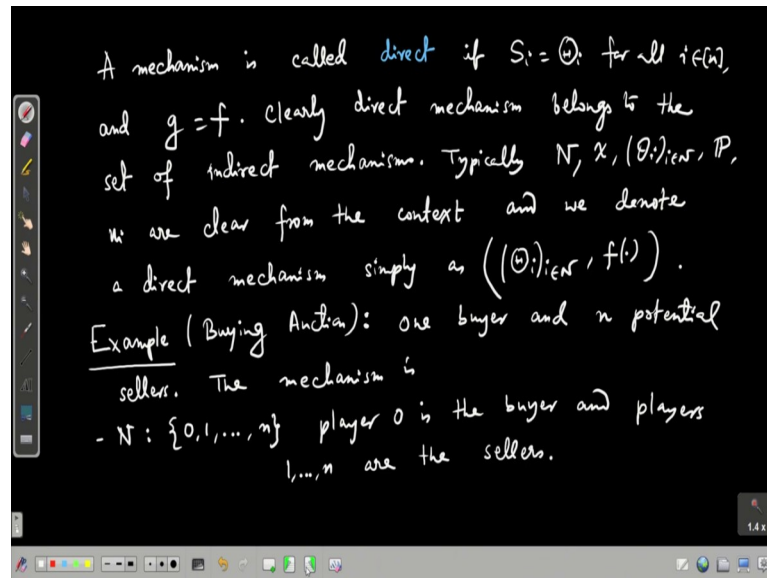 A mechanism is called direct if Sᵢ = Θᵢ for all i∈[n],
and g = f. Clearly direct mechanism belongs to the
set of indirect mechanisms. Typically N, X, (Θᵢ)ᵢ∈N, ℙ,
uᵢ are clear from the context and we denote
a direct mechanism simply as ((Θᵢ)ᵢ∈N, f(·)).
Example (Buying Auction): one buyer and n potential
sellers. The mechanism is
- N : {0,1,...,n} player 0 is the buyer and players
1,...,n are the sellers.
1.4 x